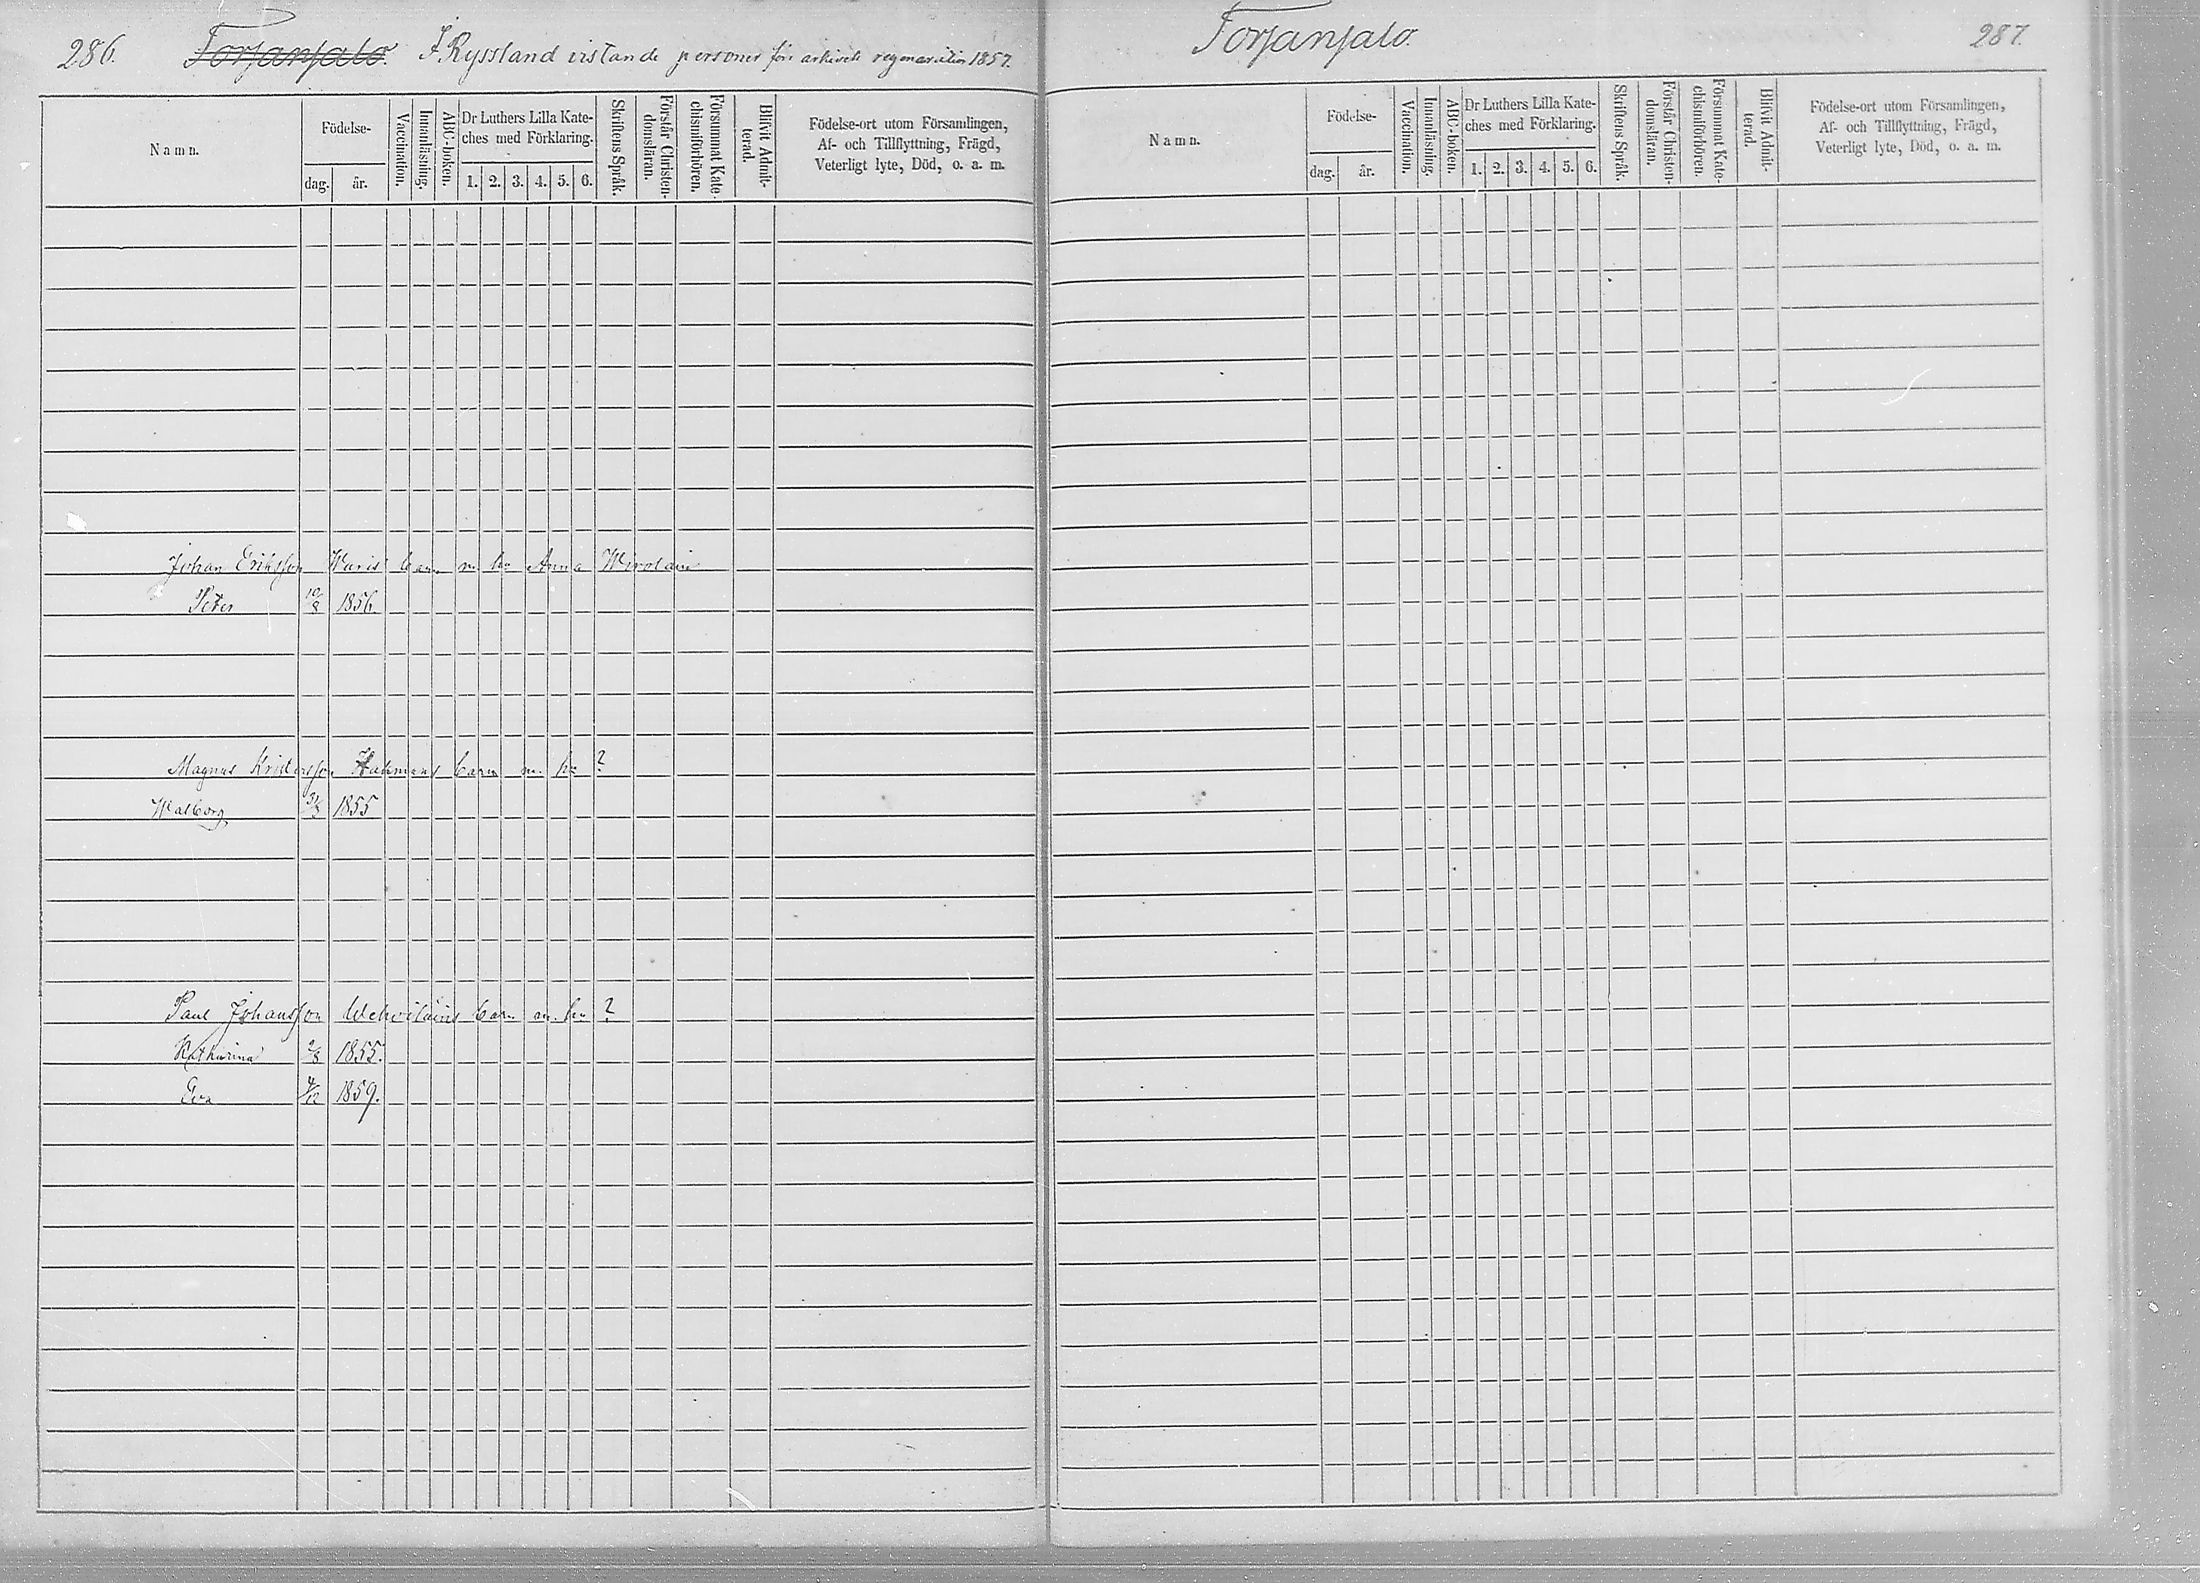 286. Torsansalo. I Ryssland vistande personer före arkivets regeneration 1857.
Namn.
Födelse-
dag. år.
Vaccination.
Innanläsning.
ABC-boken.
Dr Luthers Lilla Kate-
ches med Förklaring.
1. 2. 3. 4. 5. 6.
Skriftens Språk.
Förstår Christen-
domsläran.
Försummat Kate-
chismiförhören.
Blifvit Admit-
terad.
Födelse-ort utom Församlingen,
Af- och Tillflyttning, Frägd,
Veterligt lyte, Död, o. a. m.
Johan Eriksson Waris barn m. hu Anna Wirolain
Peter 10/8 1856.
Magnus Kristersson barn m. hu ?
Walborg 1855
Paul Johansson barn m. hu ?
Katharina 2/8 1855.
Eva 1859.
Torsansalo. 287.
Namn.
Födelse-
dag. år.
Vaccination.
Innanläsning.
ABC-boken.
Dr Luthers Lilla Kate-
ches med Förklaring.
1. 2. 3. 4. 5. 6.
Skriftens Språk.
Förstår Christen-
domsläran.
Försummat Kate-
chismiförhören.
Blifvit Admit-
terad.
Födelse-ort utom Församlingen,
Af- och Tillflyttning, Frägd,
Veterligt lyte, Död, o. a. m.